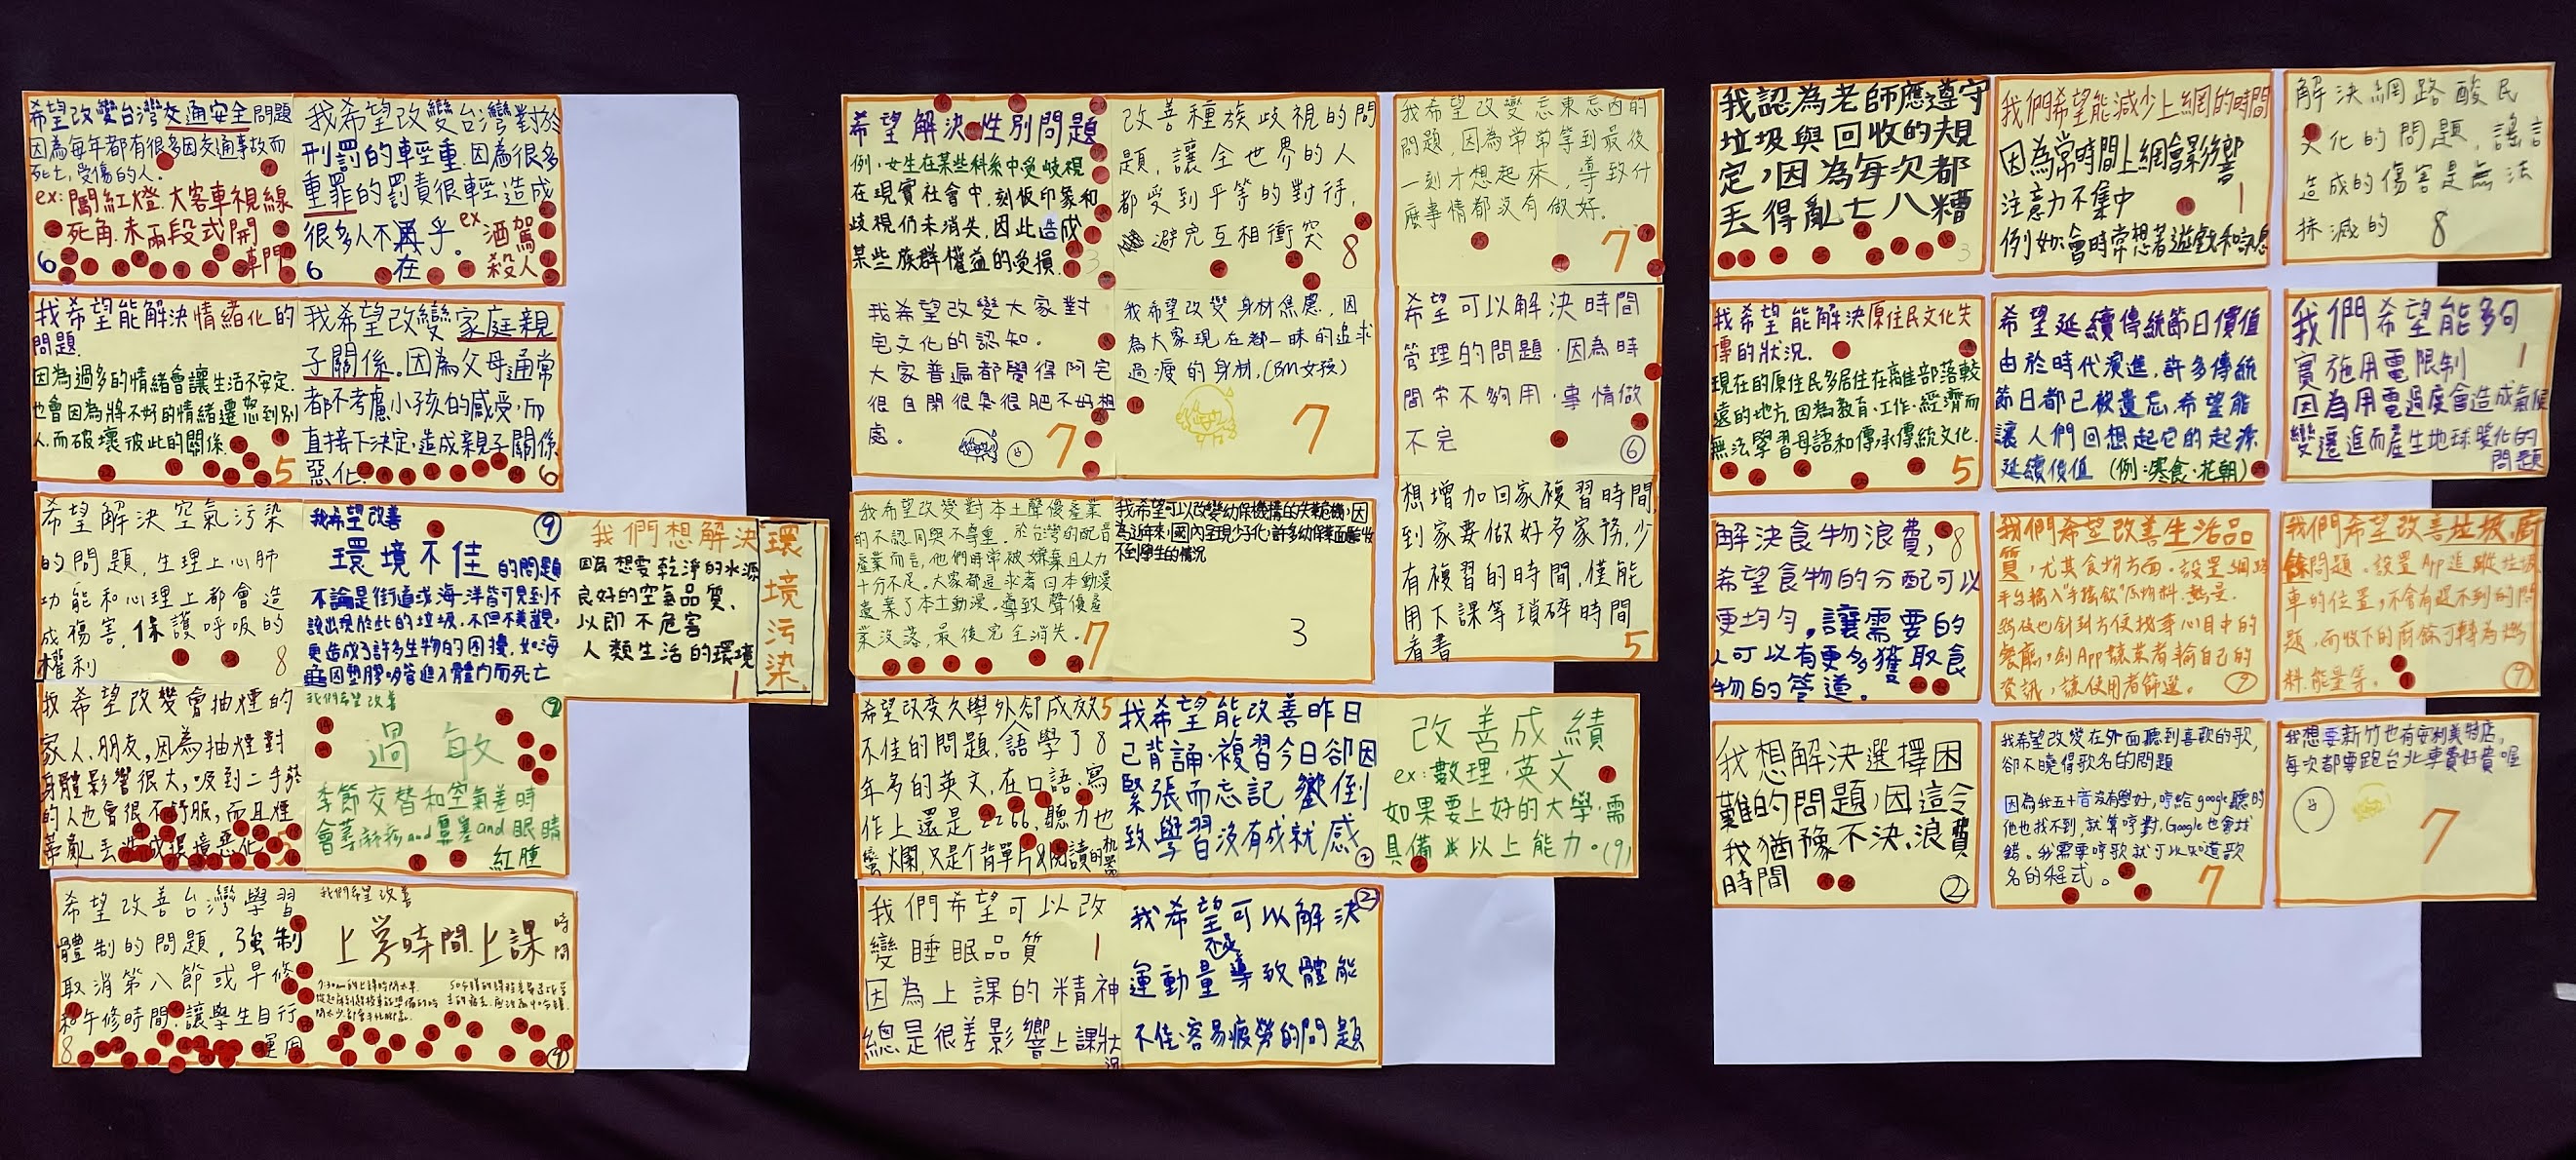 希望改變台灣交通安全問題
因為每年都有很多因交通事故而
死亡,受傷的人。
ex:闖紅燈.大客車視線
死角.未兩段式開
車門
6
我希望改變台灣對於
刑罰的輕重.因為很多
重罪的罰責很輕.造成
很多人不再乎。ex酒駕
在 殺人
6
我希望能解決情緒化的
問題.
因為過多的情緒會讓生活不安定.
也會因為將不好的情緒遷怒到別
人.而破壞彼此的關係.
5
我希望改變家庭親
子關係.因為父母通常
都不考慮小孩的感受,而
直接下決定.造成親子關係
惡化.
6
希望解決空氣污染
的問題,生理上心肺
功能和心理上都會造
成傷害,保護呼吸的
權利
8
我希望改善
9
環境不佳的問題
不論是街道或海洋皆可見到不
該出現於此的垃圾.不但不美觀,
更造成了許多生物的困擾.如海
龜因塑膠吸管進入體內而死亡
我們想解決
環境污染
因為想要乾淨的水源
良好的空氣品質、
以即不危害
人類生活的環境
1
我希望改變會抽煙的
家人.朋友,因為抽煙對
身體影響很大,吸到二手菸
的人也會很不舒服,而且煙
蒂亂丟造成環境惡化
5
我們希望改善
9
過敏
季節交替和空氣差時
會蕁麻疹and鼻塞and眼睛
紅腫
希望改善台灣學習
體制的問題,強制
取消第八節或早修
和午修時間.讓學生自行
運用
8
我們希望改善
上學時間.上課時間
9
希望解決性別問題
例:女生在某些科系中受歧視
在現實社會中.刻板印象和
歧視仍未消失,因此造成
某些族群權益的受損.
3
改善種族歧視的問
題,讓全世界的人
都受到平等的對待,
避免互相衝突
8
我希望改變忘東忘西的
問題,因為常常等到最後
一刻才想起來,導致什
麼事情都沒有做好.
7
我希望改變大家對
宅文化的認知。
大家普遍都覺得阿宅
很自閉很臭很肥不好相
處。
7
我希望改變身材焦慮,因
為大家現在都一昧的追求
過瘦的身材,(BM女孩)
7
希望可以解決時間
管理的問題.因為時
間常不夠用.事情做
不完
6
我希望改變對本土聲優產業
的不認同與不尊重。於台灣的配音
產業而言,他們時常被嫌棄且人力
十分不足.大家都追求著日本動漫
遺棄了本土動漫.導致聲優產
業沒落,最後完全消失.
7
我希望可以改變幼保機構的失業危機,因
為近年來,國內呈現少子化,許多幼保業面臨收
不到學生的情況
3
想增加回家複習時間,
到家要做好多家務,少
有複習的時間,僅能
用下課等瑣碎時間
看書
5
希望改變久學外卻成效5
不佳的問題,語學了8
年多的英文,在口語.寫
作上還是2266,聽力也
蠻爛,只是个背單片&閱讀的机器
我希望能改善昨日
已背誦.複習今日卻因
緊張而忘記 嚮倒
致學習沒有成就感
2
改善成績
ex:數理.英文
如果要上好的大學.需
具備此以上能力。(9)
我們希望可以改
變睡眠品質
1
因為上課的精神
總是很差影響上課狀況
2
我希望可以解決
不足
運動量導致體能
不佳.容易疲勞的問題
我認為老師應遵守
垃圾與回收的規
定,因為每次都
丟得亂七八糟
3
我們希望能減少上網的時間
因為常時間上網會影響
注意力不集中
1
例如:會時常想著遊戲和訊息
解決網路酸民
文化的問題,謠言
造成的傷害是無法
抹滅的
8
我希望能解決原住民文化失
傳的狀況.
現在的原住民多居住在離住部落較
遠的地方,因為教育.工作.經濟而
無法學習母語和傳承傳統文化.
5
希望延續傳統節日價值
由於時代演進,許多傳統
節日都已被遺忘,希望能
讓人們回想起它的起源
延續價值 (例:寒食.花朝)
我們希望能多句
實施用電限制
1
因為用電過度會造成氣候
變遷進而產生地球暖化的
問題
解決食物浪費,
8
希望食物的分配可以
更均勻,讓需要的
人可以有更多獲取食
物的管道。
我們希望改善生活品
質,尤其食物方面.設置網路
平台輸入"手搖飲"
餐廳,創App讓業者輸自己的
資訊,讓使用者篩選。
9
我們希望改善垃圾.廚
餘問題。設置App追蹤垃圾
車的位置,不會有遇不到的問
題,而收下的廚餘可轉為燃
料.能量等.
9
我想解決選擇困
難的問題,因這令
我猶豫不決.浪費
時間
2
我希望改變在外面聽到喜歡的歌,
卻不曉得歌名的問題
因為我五十音沒有學好,哼給google聽時
他也找不到,就算哼對,Google也會找
錯。我需要哼歌就可以知道歌
名的程式。
7
我想要新竹也有安利美特店,
每次都要跑台北車費好貴喔
7